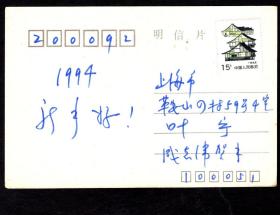 200092
明信片
1994
新年好!
15分
中国人民邮政
上海市
鞍山四村59号4室
叶宇
100051